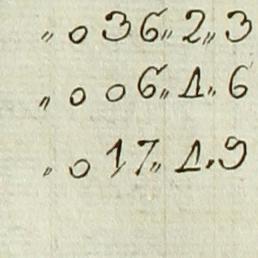 „ 0 3 6 „ 2 „ 3
„ 0 0 6 „ 1 „ 6
„ 0 1 7 „ 1 „ 9